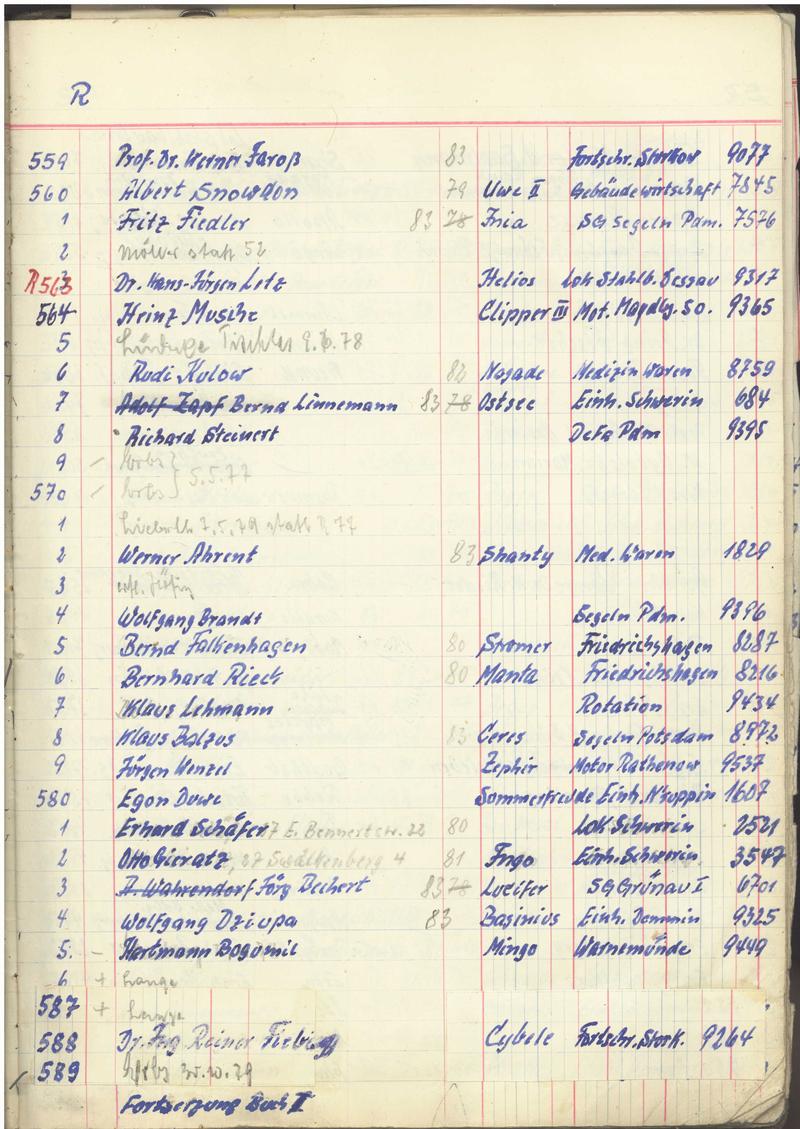 R
559 Prof. Dr. Werner Faroß 83 Fortschr. Storkow 9077
560 Albert Snowdon 79 Uwe II Gebäudewirtschaft 7845
1 Fritz Fiedler 83 78 Inia SG Segeln Pdm. 7576
2 statt 52
R563 Dr. Hans-Jürgen Letz Helios Lok Stahlb. Dessau 9317
564 Heinz Musche Clipper III Mot. Magdbg. So. 9365
5 78
6 Rudi Kulow 82 Nagade Medizin Waren 8759
7 Adolf Zapf Bernd Linnemann 83 78 Ostsee Einh. Schwerin 684
8 Richard Steinert Defa Pdm 9395
9 -
570 - 5.5.77
1 7.5.79 statt 77
2 Werner Ahrent 83 Shanty Med. Waren 1829
3
4 Wolfgang Brandt Segeln Pdm. 9396
5 Bernd Falkenhagen 80 Stromer Friedrichshagen 8287
6 Bernhard Rieck 80 Manta Friedrichshagen 8216
7 Klaus Lehmann Rotation 9434
8 Klaus Balzus 83 Ceres Segeln Potsdam 8972
9 Jürgen Wenzel Zephir Motor Rathenow 9537
580 Egon Duwe Sommerfreude Einh. N'ruppin 1607
1 Erhard Schäfer 27 E. Bennertstr. 22 80 Lok Schwerin 2521
2 Otto Gieratz, 27 4 81 Ingo Einh. Schwerin 3547
3 Wahrendorf Jörg Bechert 83 78 Lucifer SG Grünau I 6701
4 Wolfgang Dziupa 83 Basinius Einh. Demmin 9325
5. - Hartmann Bogumil Mingo Warnemünde 9449
6 + Lange
587 + Lange
588 Dr. Ing Reiner Fiebig Cybele Fortschr. Stork. 9264
589 30.10.79
Fortsetzung Buch II